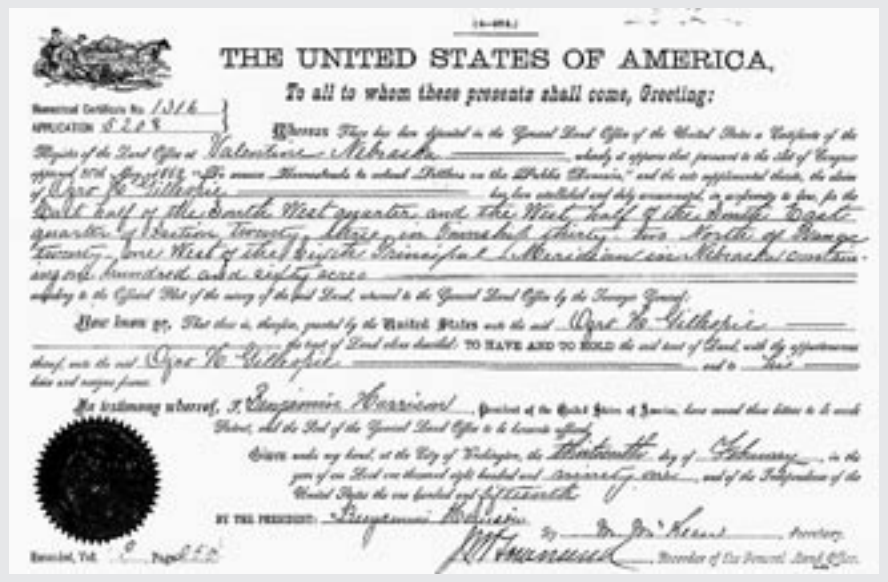 (4-404.)
THE UNITED STATES OF AMERICA,
To all to whom these presents shall come, Greeting:
Homestead Certificate No. 1316
APPLICATION 5208
Whereas There has been deposited in the General Land Office of the United States a Certificate of the
Register of the Land Office at Valentine Nebraska, whereby it appears that, pursuant to the Act of Congress
approved 20th May, 1862, "To secure Homesteads to actual Settlers on the Public Domain," and the acts supplemental thereto, the claim
of Ozro N. Gillespie has been established and duly consummated, in conformity to law, for the
East half of the South West quarter and the West half of the South East
quarter of Section twenty three in Township thirty two North of Range
twenty one West of the Sixth Principal Meridian in Nebraska contain-
ing one hundred and sixty acres
according to the Official Plat of the survey of the said Land, returned to the General Land Office by the Surveyor General:
Now know ye, That there is, therefore, granted by the United States unto the said Ozro N. Gillespie
the tract of Land above described: TO HAVE AND TO HOLD the said tract of Land, with the appurtenances
thereof, unto the said Ozro N. Gillespie and to his
heirs and assigns forever.
In testimony whereof, I, Benjamin Harrison, President of the United States of America, have caused these letters to be made
Patent, and the Seal of the General Land Office to be hereunto affixed.
Given under my hand, at the City of Washington, the thirteenth day of February, in the
year of our Lord one thousand eight hundred and ninety one, and of the Independence of the
United States the one hundred and fifteenth
BY THE PRESIDENT: Benjamin Harrison
By M. McKean, Secretary.
J M Townsend, Recorder of the General Land Office.
Recorded, Vol. Page 250